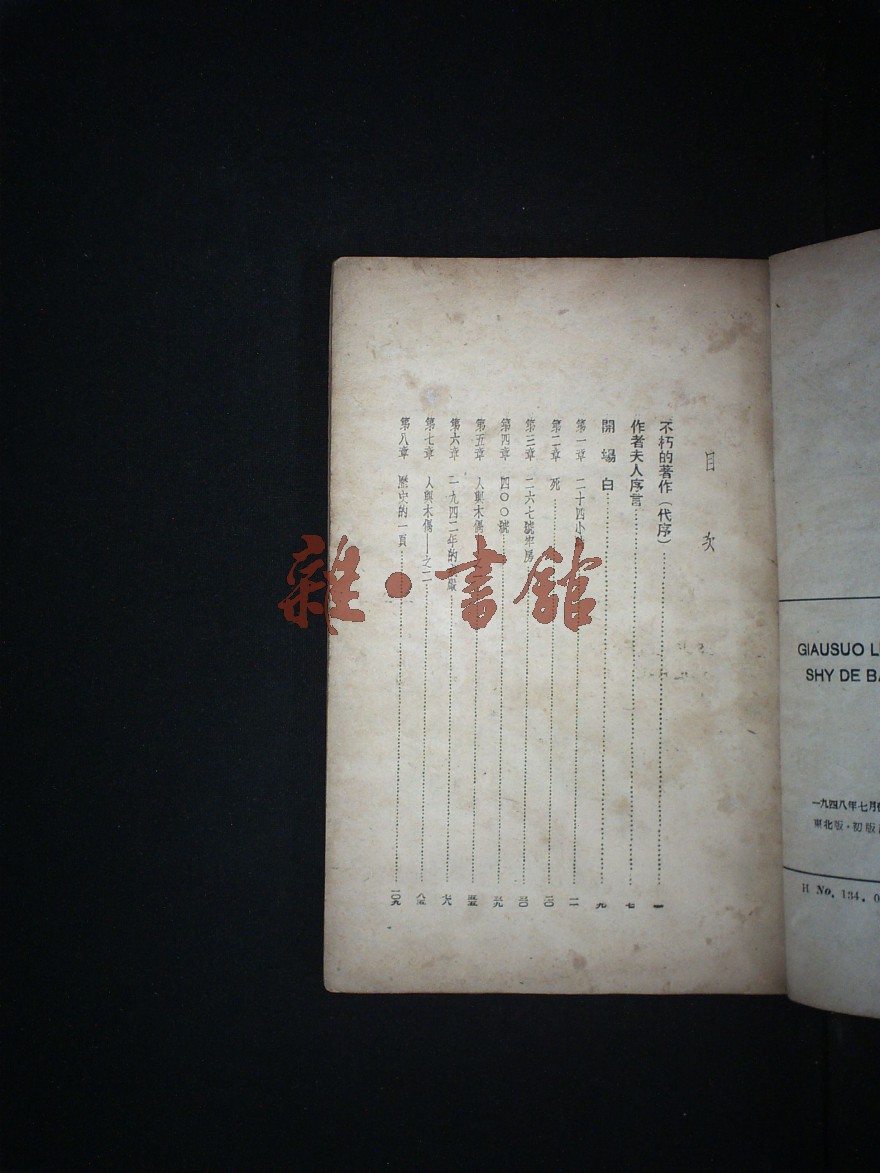 目次
不朽的著作(代序)……一
作者夫人序言……七
開場白……九
第一章 二十四小……一一
第二章 死……二〇
第三章 二六七號牢房……三〇
第四章 四〇〇號……三九
第五章 人與木偒……五五
第六章 一九四二年的……七八
第七章 人與木偒——之二……八五
第八章 歷史的一頁……一〇九
雜·書館
GIAUSUO L
SHY DE B
一九四八年七月
東北版·初版
H No. 134. 0